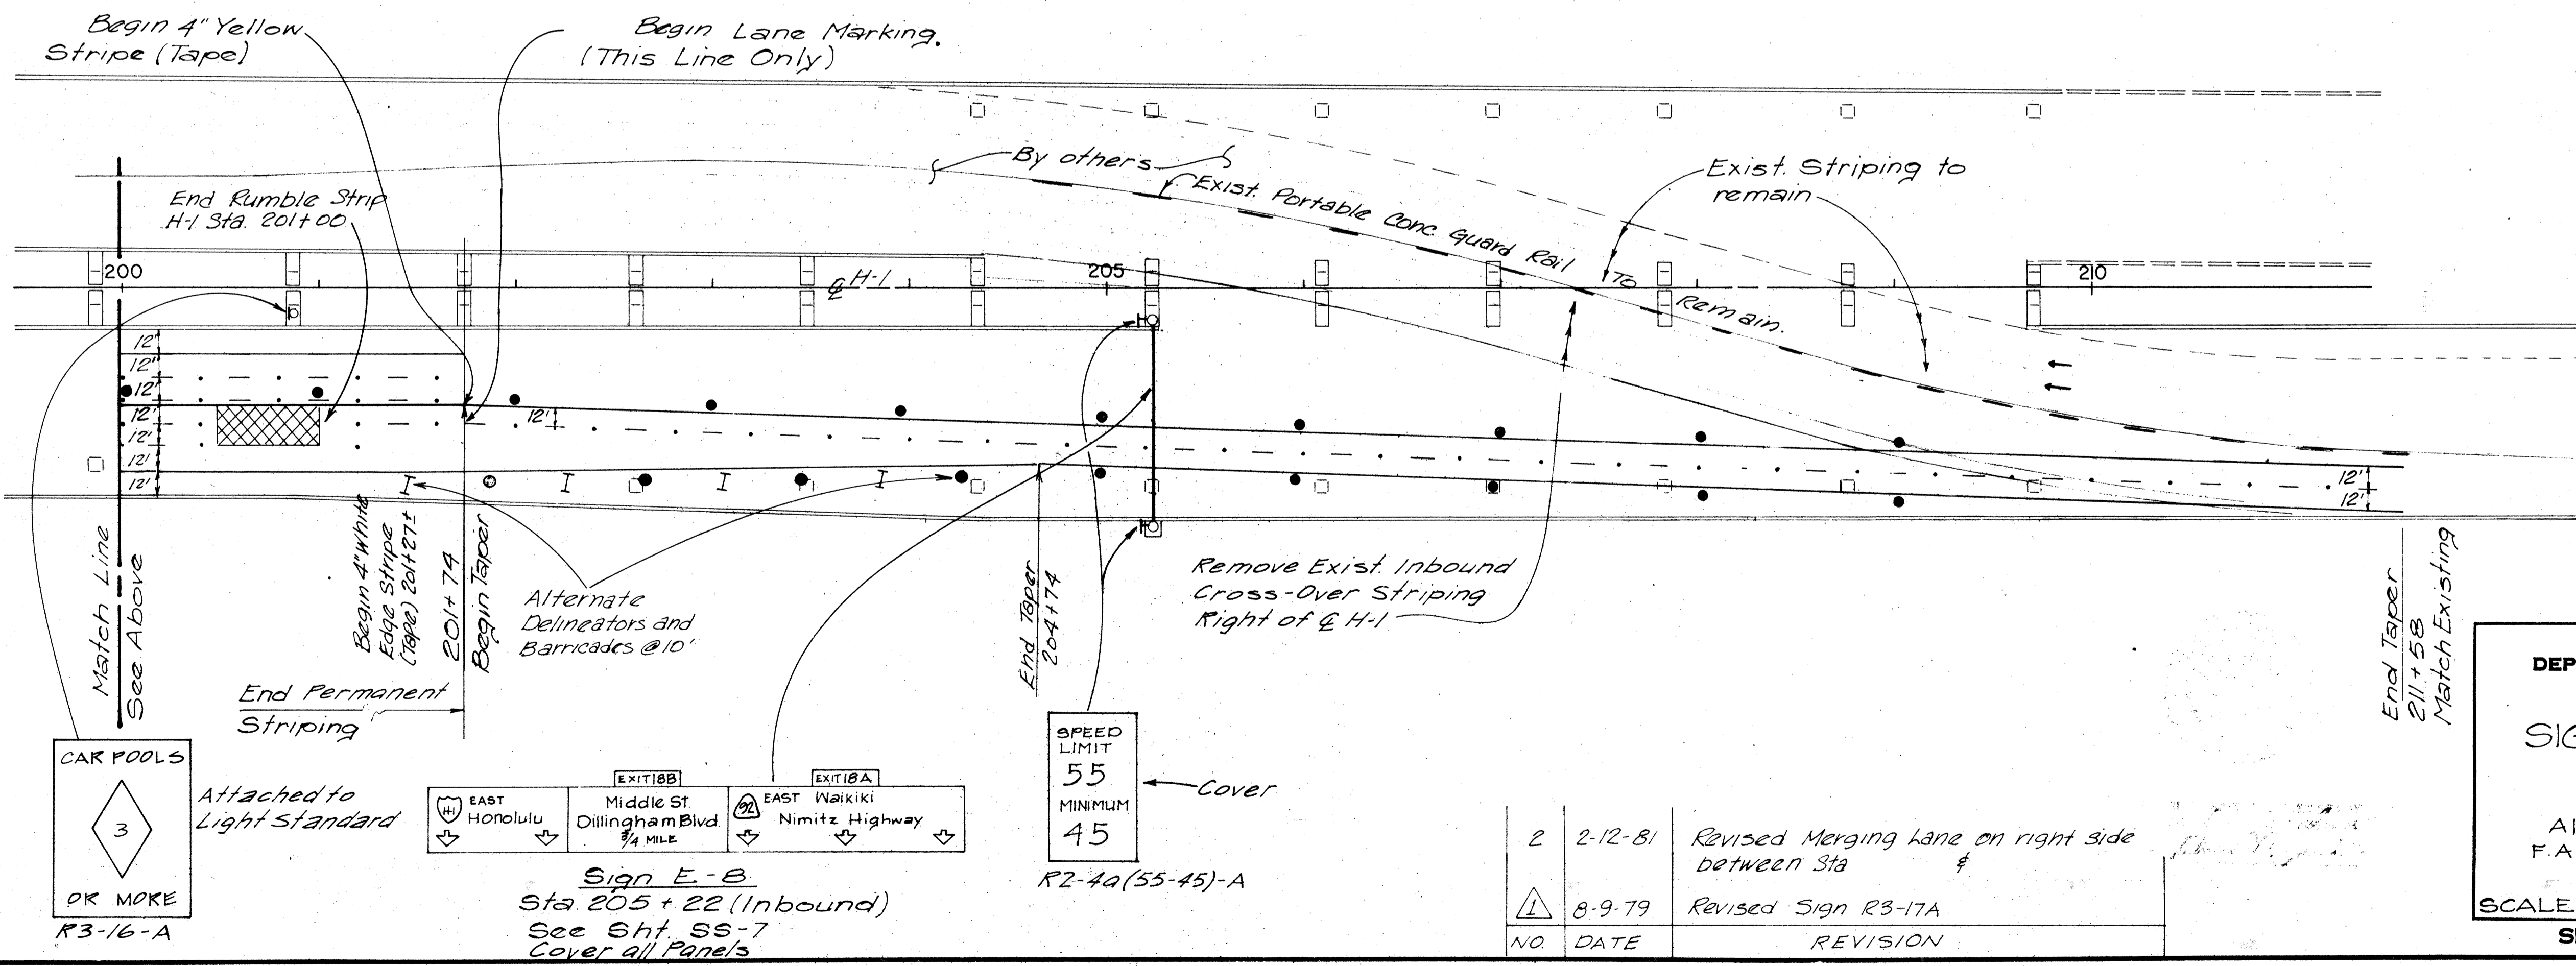 Begin 4" Yellow
Stripe (Tape)
Begin Lane Marking.
(This Line Only)
By others
Exist. Portable Conc. Guard Rail To Remain.
Exist. Striping to
remain
End Rumble Strip
H-1 Sta. 201+00
200
℄ H-1
205
210
12'
12'
12'
12'
12'
12'
12'
12'
12'
12'
Match Line
See Above
Begin 4" White
Edge Stripe
(Tape) 201+27±
201+74
Begin Taper
Alternate
Delineators and
Barricades @ 10'
End Permanent
Striping
End Taper
204+74
Remove Exist. Inbound
Cross-Over Striping
Right of ℄ H-1
End Taper
211+58
Match Existing
CAR POOLS
3
OR MORE
R3-16-A
Attached to
Light Standard
EXIT 18B
EXIT 18A
H-1
EAST
Honolulu
Middle St.
Dillingham Blvd.
3/4 MILE
92
EAST Waikiki
Nimitz Highway
Sign E-8
Sta. 205+22 (Inbound)
See Sht. SS-7
Cover all Panels
SPEED
LIMIT
55
MINIMUM
45
R2-4a(55-45)-A
Cover
2 2-12-81 Revised Merging Lane on right side
between Sta &
1 8-9-79 Revised Sign R3-17A
NO. DATE REVISION
DEP
SIG
F.A
SCALE